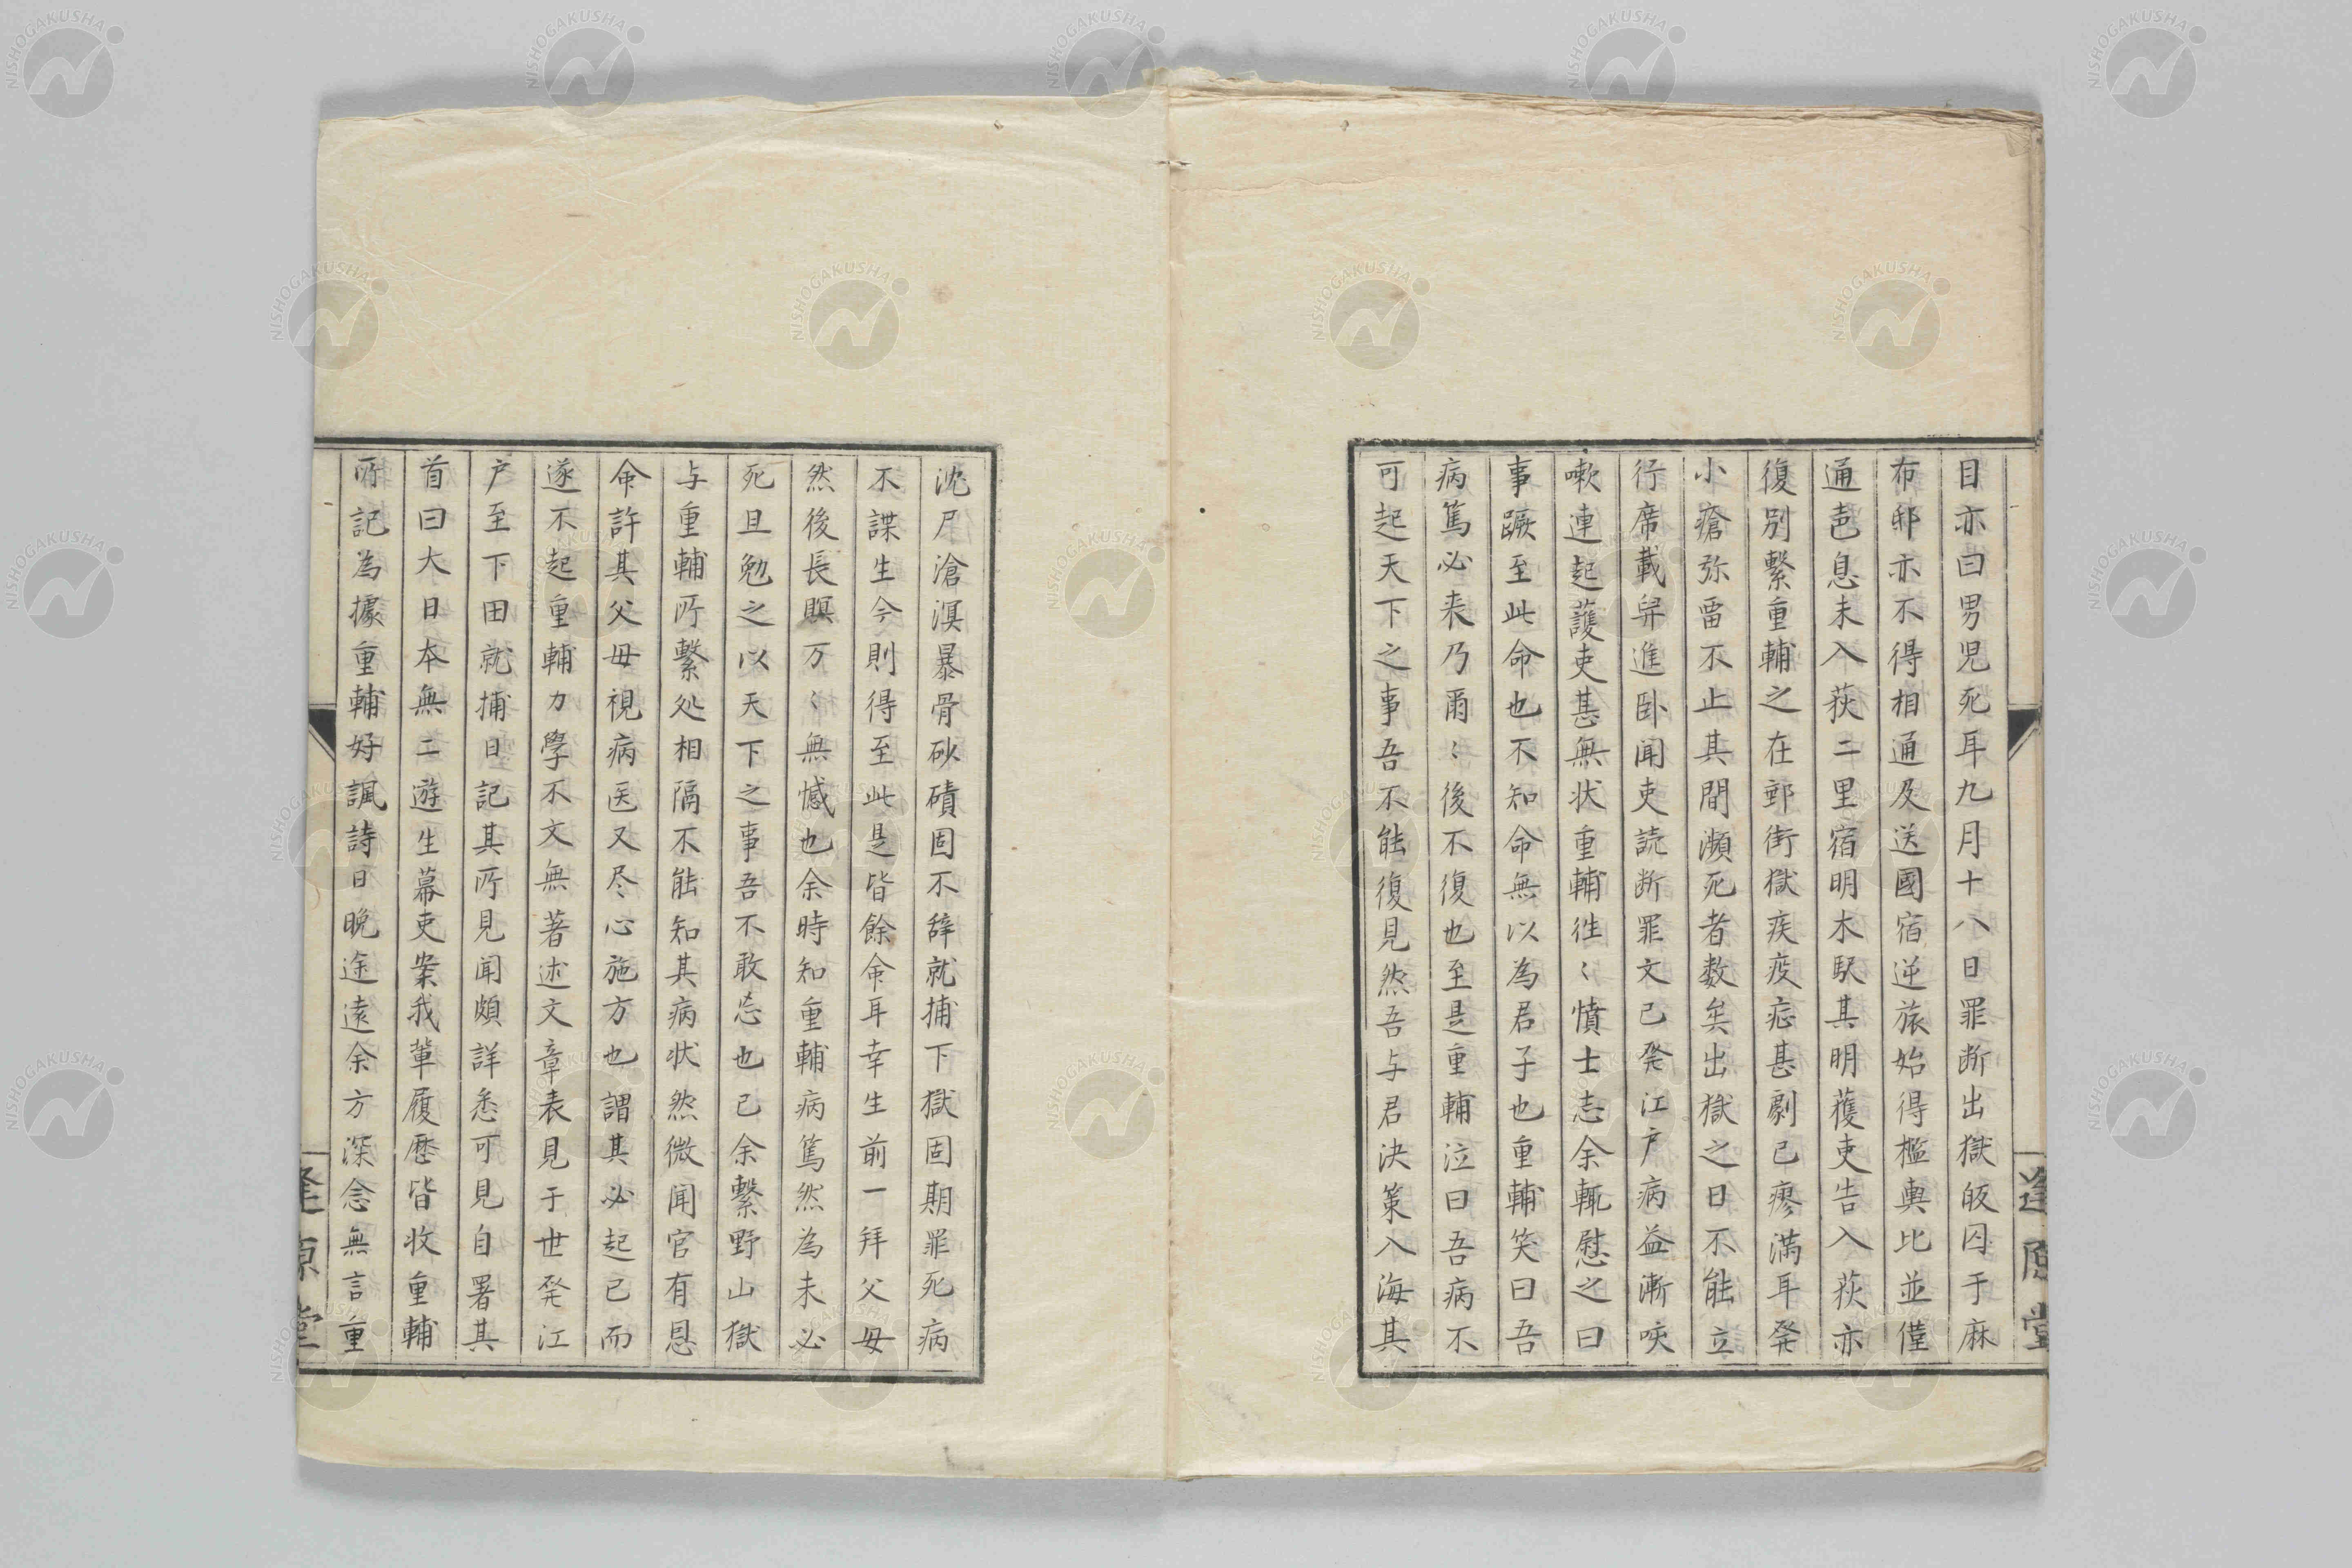 目亦曰男児死耳九月十八日罪断出獄皈囚于麻
布邸亦不得相通及送國宿逆旅始得檻輿比並僅
通邑息未入荻二里宿明木駅其明護吏告入荻亦
復別繫重輔之在郵街獄疾疫症甚劇已瘳満耳発
小瘡弥畱不止其間瀕死者数矣出獄之日不能立
行席載舁進卧聞吏読断罪文已発江戸病益漸咳
嗽連起護吏甚無状重輔徃〻憤士志余輒慰之曰
事蹶至此命也不知命無以為君子也重輔笑曰吾
病篤必来乃爾〻後不復也至是重輔泣曰吾病不
可起天下之事吾不能復見然吾与君決策入海其
沈尸滄溟暴骨砂磧固不辞就捕下獄固期罪死病
不諜生今則得至此是皆餘命耳幸生前一拜父母
然後長瞑万〻無憾也余時知重輔病篤然為未必
死且勉之以天下之事吾不敢忘也已余繫野山獄
与重輔所繫処相隔不能知其病状然微聞官有恩
命許其父母視病医又尽心施方也謂其必起已而
遂不起重輔力學不文無著述文章表見于世発江
戸至下田就捕日記其所見聞頗詳悉可見自署其
首曰大日本無二遊生幕吏案我輩履歴皆收重輔
所記為據重輔好諷詩日晩途遠余方深念無言重
逢原堂
逢原堂
NISHOGAKUSHA